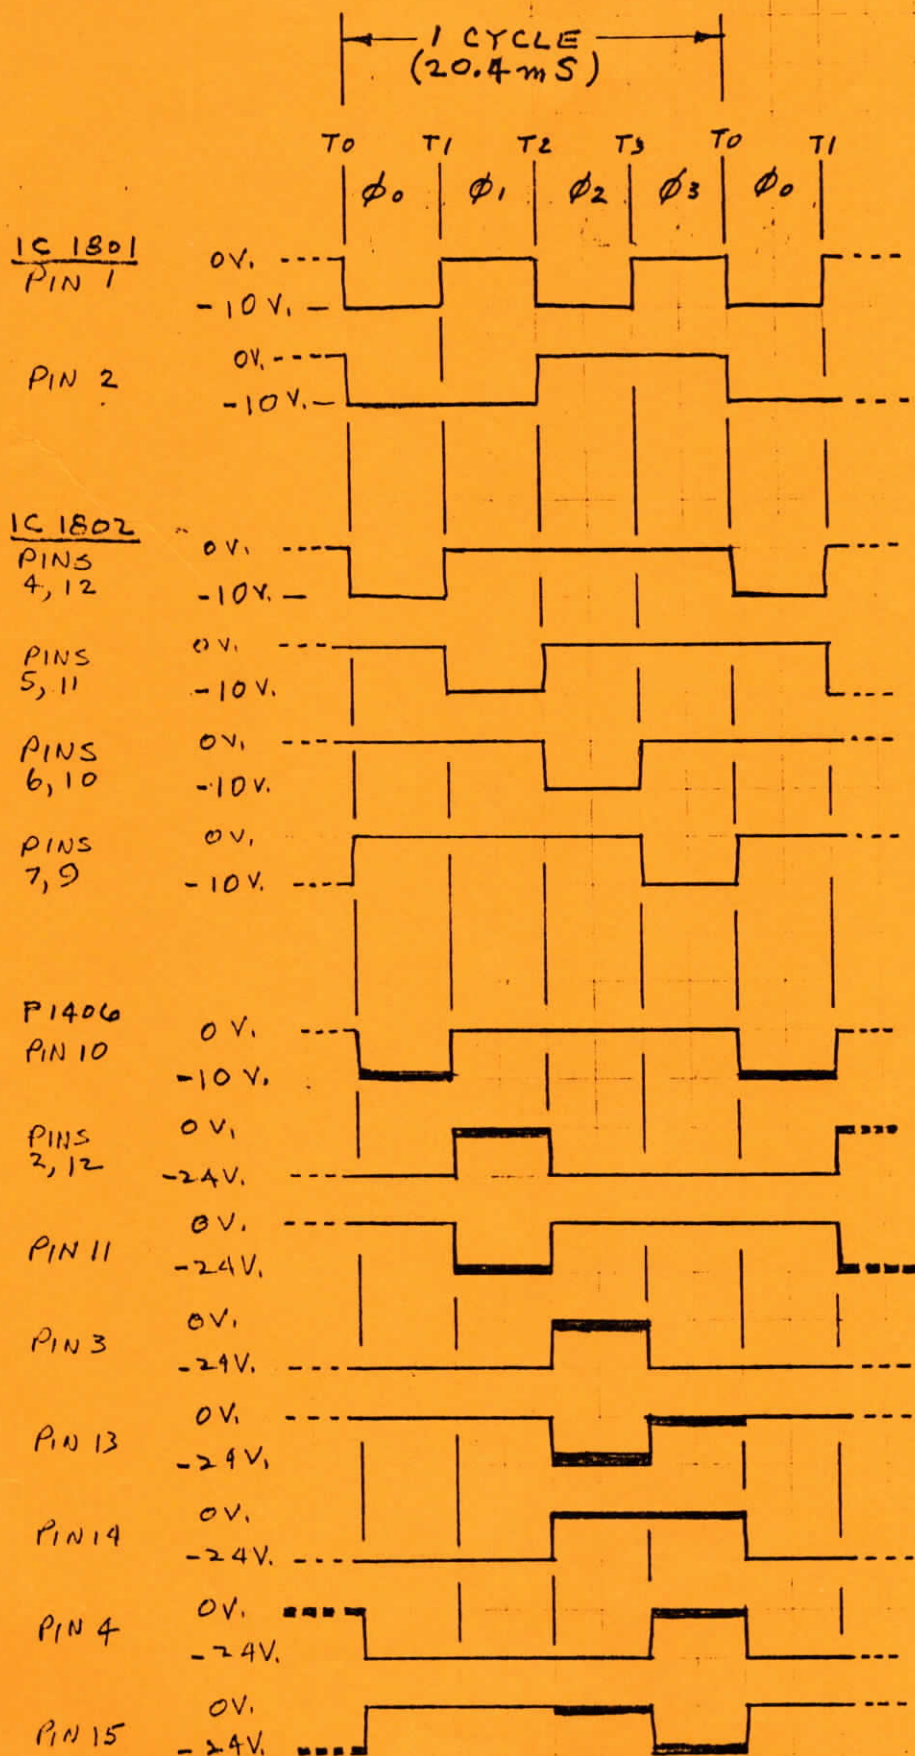 1 CYCLE
(20.4 mS)
T0 T1 T2 T3 T0 T1
φ0 φ1 φ2 φ3 φ0
IC 1801
PIN 1
0V.
-10V.
PIN 2
0V.
-10V.
IC 1802
PINS
4, 12
0V.
-10V.
PINS
5, 11
0V.
-10V.
PINS
6, 10
0V.
-10V.
PINS
7, 9
0V.
-10V.
P1406
PIN 10
0V.
-10V.
PINS
2, 12
0V.
-24V.
PIN 11
0V.
-24V.
PIN 3
0V.
-24V.
PIN 13
0V.
-24V.
PIN 14
0V.
-24V.
PIN 4
0V.
-24V.
PIN 15
0V.
-24V.